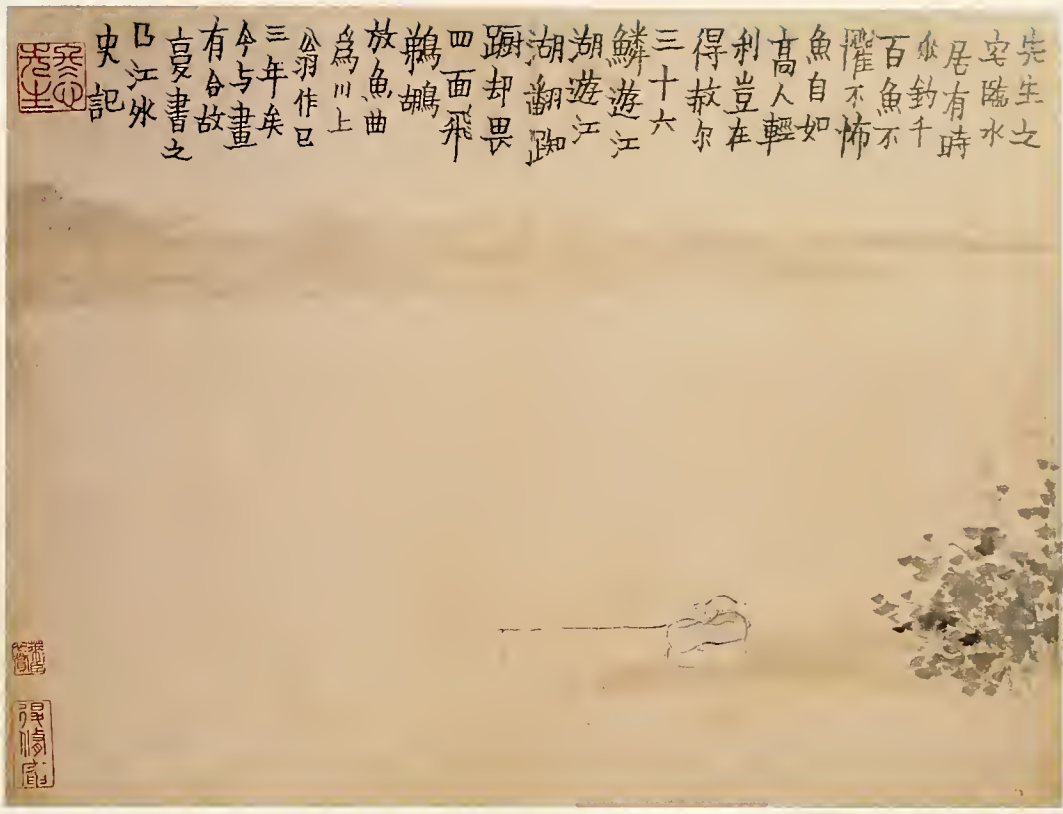 先生之
宅臨水
居有時
來釣千
百魚不
懼不怖
魚自如
高人輕
利豈在
得赦尔
三十六
鱗遊江
湖遊江
湖翻踟
蹰却畏
四面飛
鵜鶘
放魚曲
爲川上
翁作已
三年矣
今与畫
有合故
書之
曲江外
史記
冬心先生